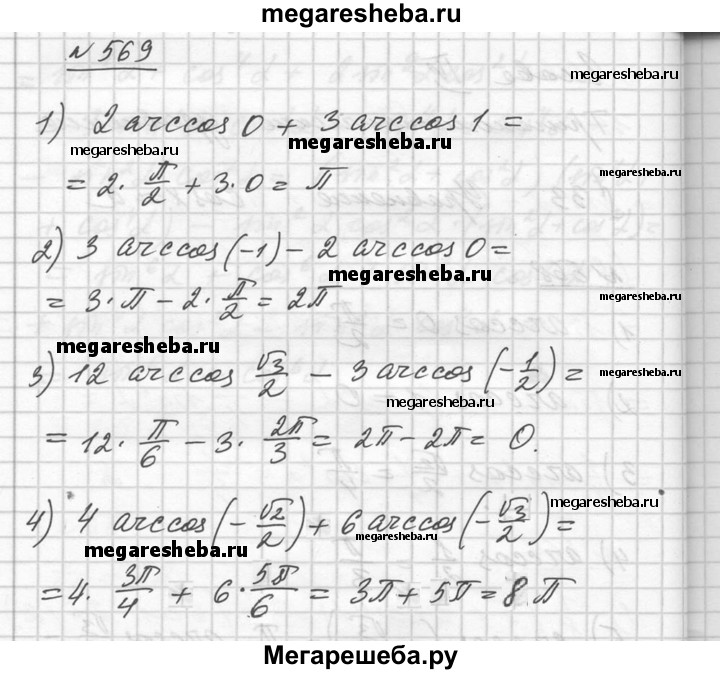 megaresheba.ru
№ 569
megaresheba.ru
1) 2 arccos 0 + 3 arccos 1 =
megaresheba.ru megaresheba.ru
= 2 · π/2 + 3 · 0 = π
megaresheba.ru
2) 3 arccos (-1) - 2 arccos 0 =
megaresheba.ru
= 3 · π - 2 · π/2 = 2π
megaresheba.ru
megaresheba.ru
3) 12 arccos √3/2 - 3 arccos (-1/2) =
megaresheba.ru
megaresheba.ru
= 12 · π/6 - 3 · 2π/3 = 2π - 2π = 0.
4) 4 arccos (-√2/2) + 6 arccos (-√3/2) =
megaresheba.ru
megaresheba.ru megaresheba.ru
= 4 · 3π/4 + 6 · 5π/6 = 3π + 5π = 8π
megaresheba.ru
Мегарешеба.ру